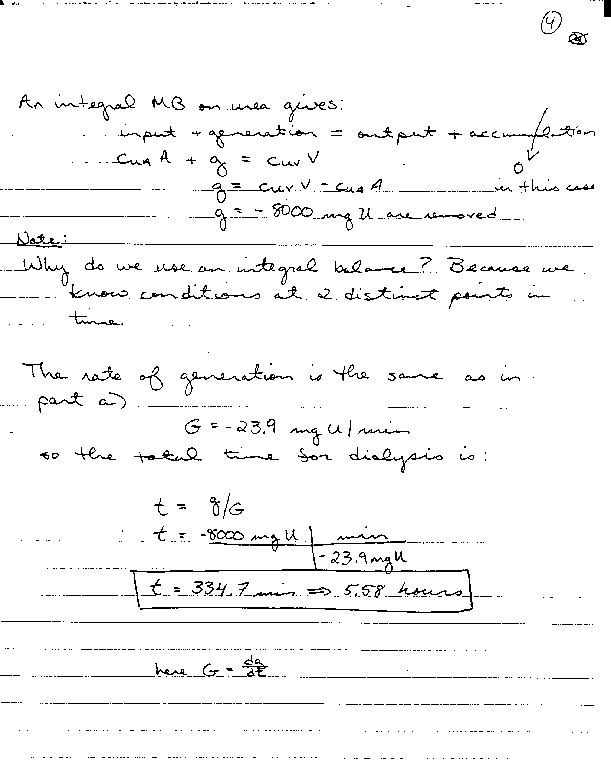 4
An integral MB on urea gives:
input + generation = output + accumulation
CuA A + g = Cuv V
0
g = Cuv V - CuA A in this case
g = - 8000 mg U are removed
Note:
Why do we use an integral balance? Because we
know conditions at 2 distinct points in
time.
The rate of generation is the same as in
part a)
G = -23.9 mg U/min
so the total time for dialysis is:
t = g/G
t = -8000 mg U | min
-23.9 mg U
t = 334.7 min ⇒ 5.58 hours
here G = dg/dt